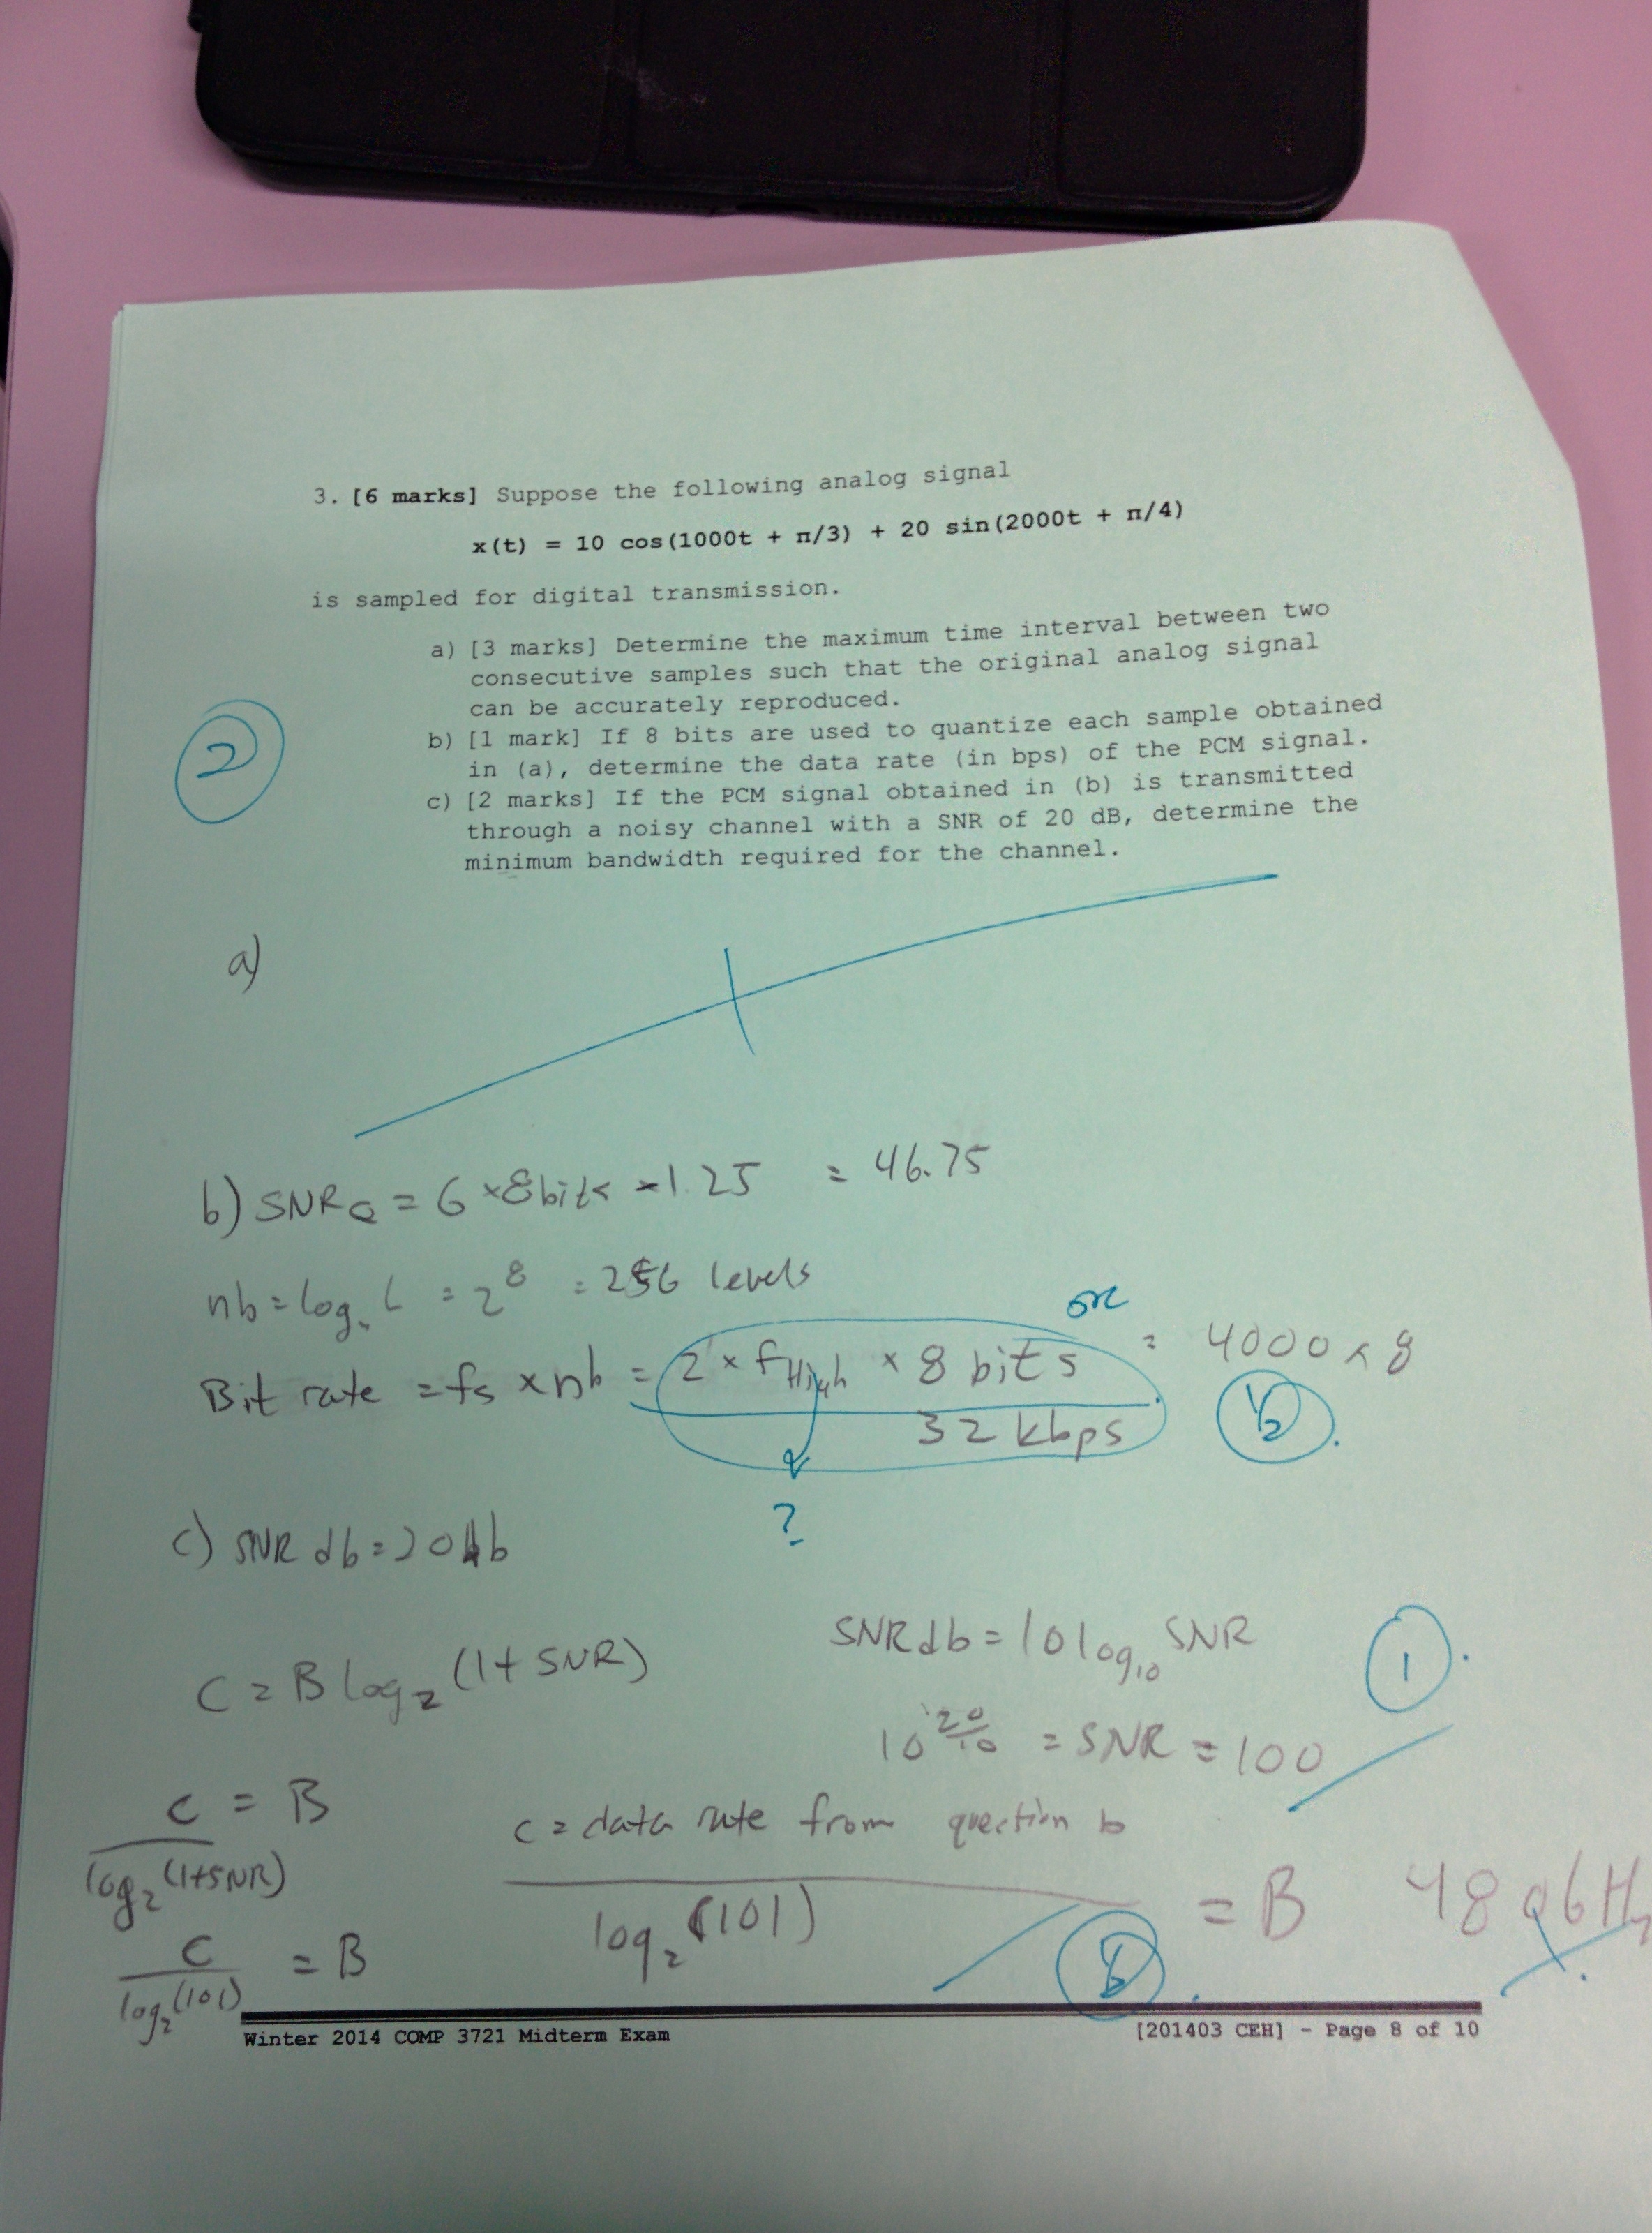 3. [6 marks] Suppose the following analog signal
x(t) = 10 cos(1000t + π/3) + 20 sin(2000t + π/4)
is sampled for digital transmission.
a) [3 marks] Determine the maximum time interval between two
consecutive samples such that the original analog signal
can be accurately reproduced.
b) [1 mark] If 8 bits are used to quantize each sample obtained
in (a), determine the data rate (in bps) of the PCM signal.
c) [2 marks] If the PCM signal obtained in (b) is transmitted
through a noisy channel with a SNR of 20 dB, determine the
minimum bandwidth required for the channel.
2
a)
b) SNRQ = 6 × 8bits - 1.25 = 46.75
nb = log L = 2^8 = 256 levels
Bit rate = fs × nb = 2 × fHigh × 8 bits = 4000 × 8
32 kbps
1/2
?
c) SNR db = 20db
SNR db = 10 log10 SNR
1
C = B log2 (1 + SNR)
10^20/10 = SNR = 100
C / log2(1+SNR) = B
C = data rate from question b / log2(101) = B 4806Hz
C / log2(101) = B
Winter 2014 COMP 3721 Midterm Exam [201403 CEH] - Page 8 of 10